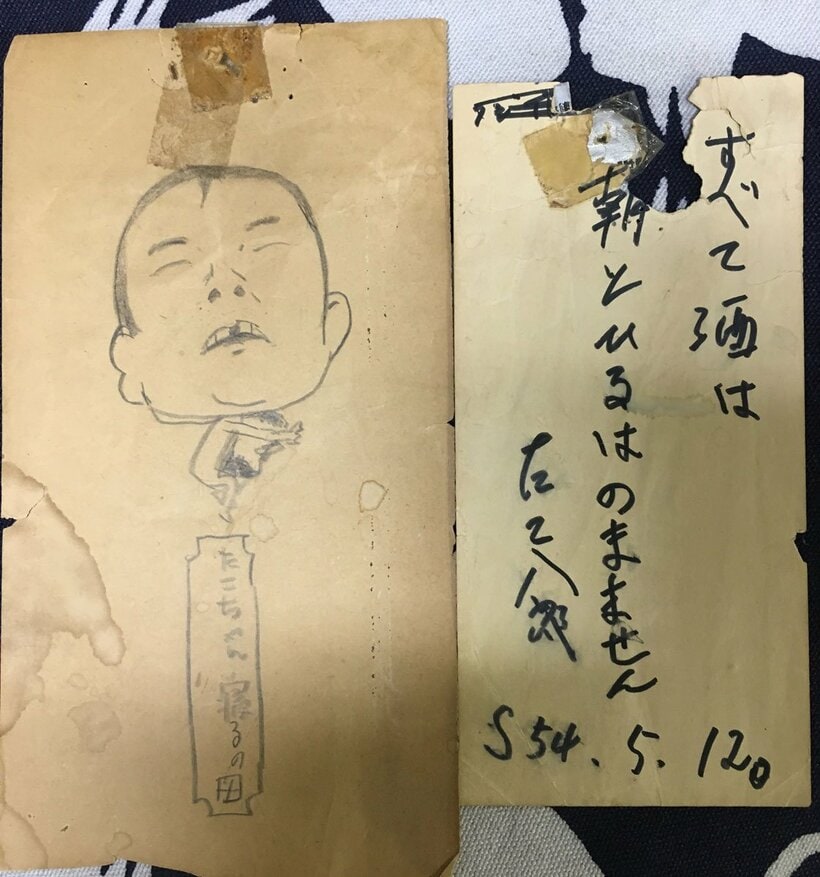 すべて酒は
朝とひるはのまません
たこ八郎
S54.5.12。
たこちゃん寝るの